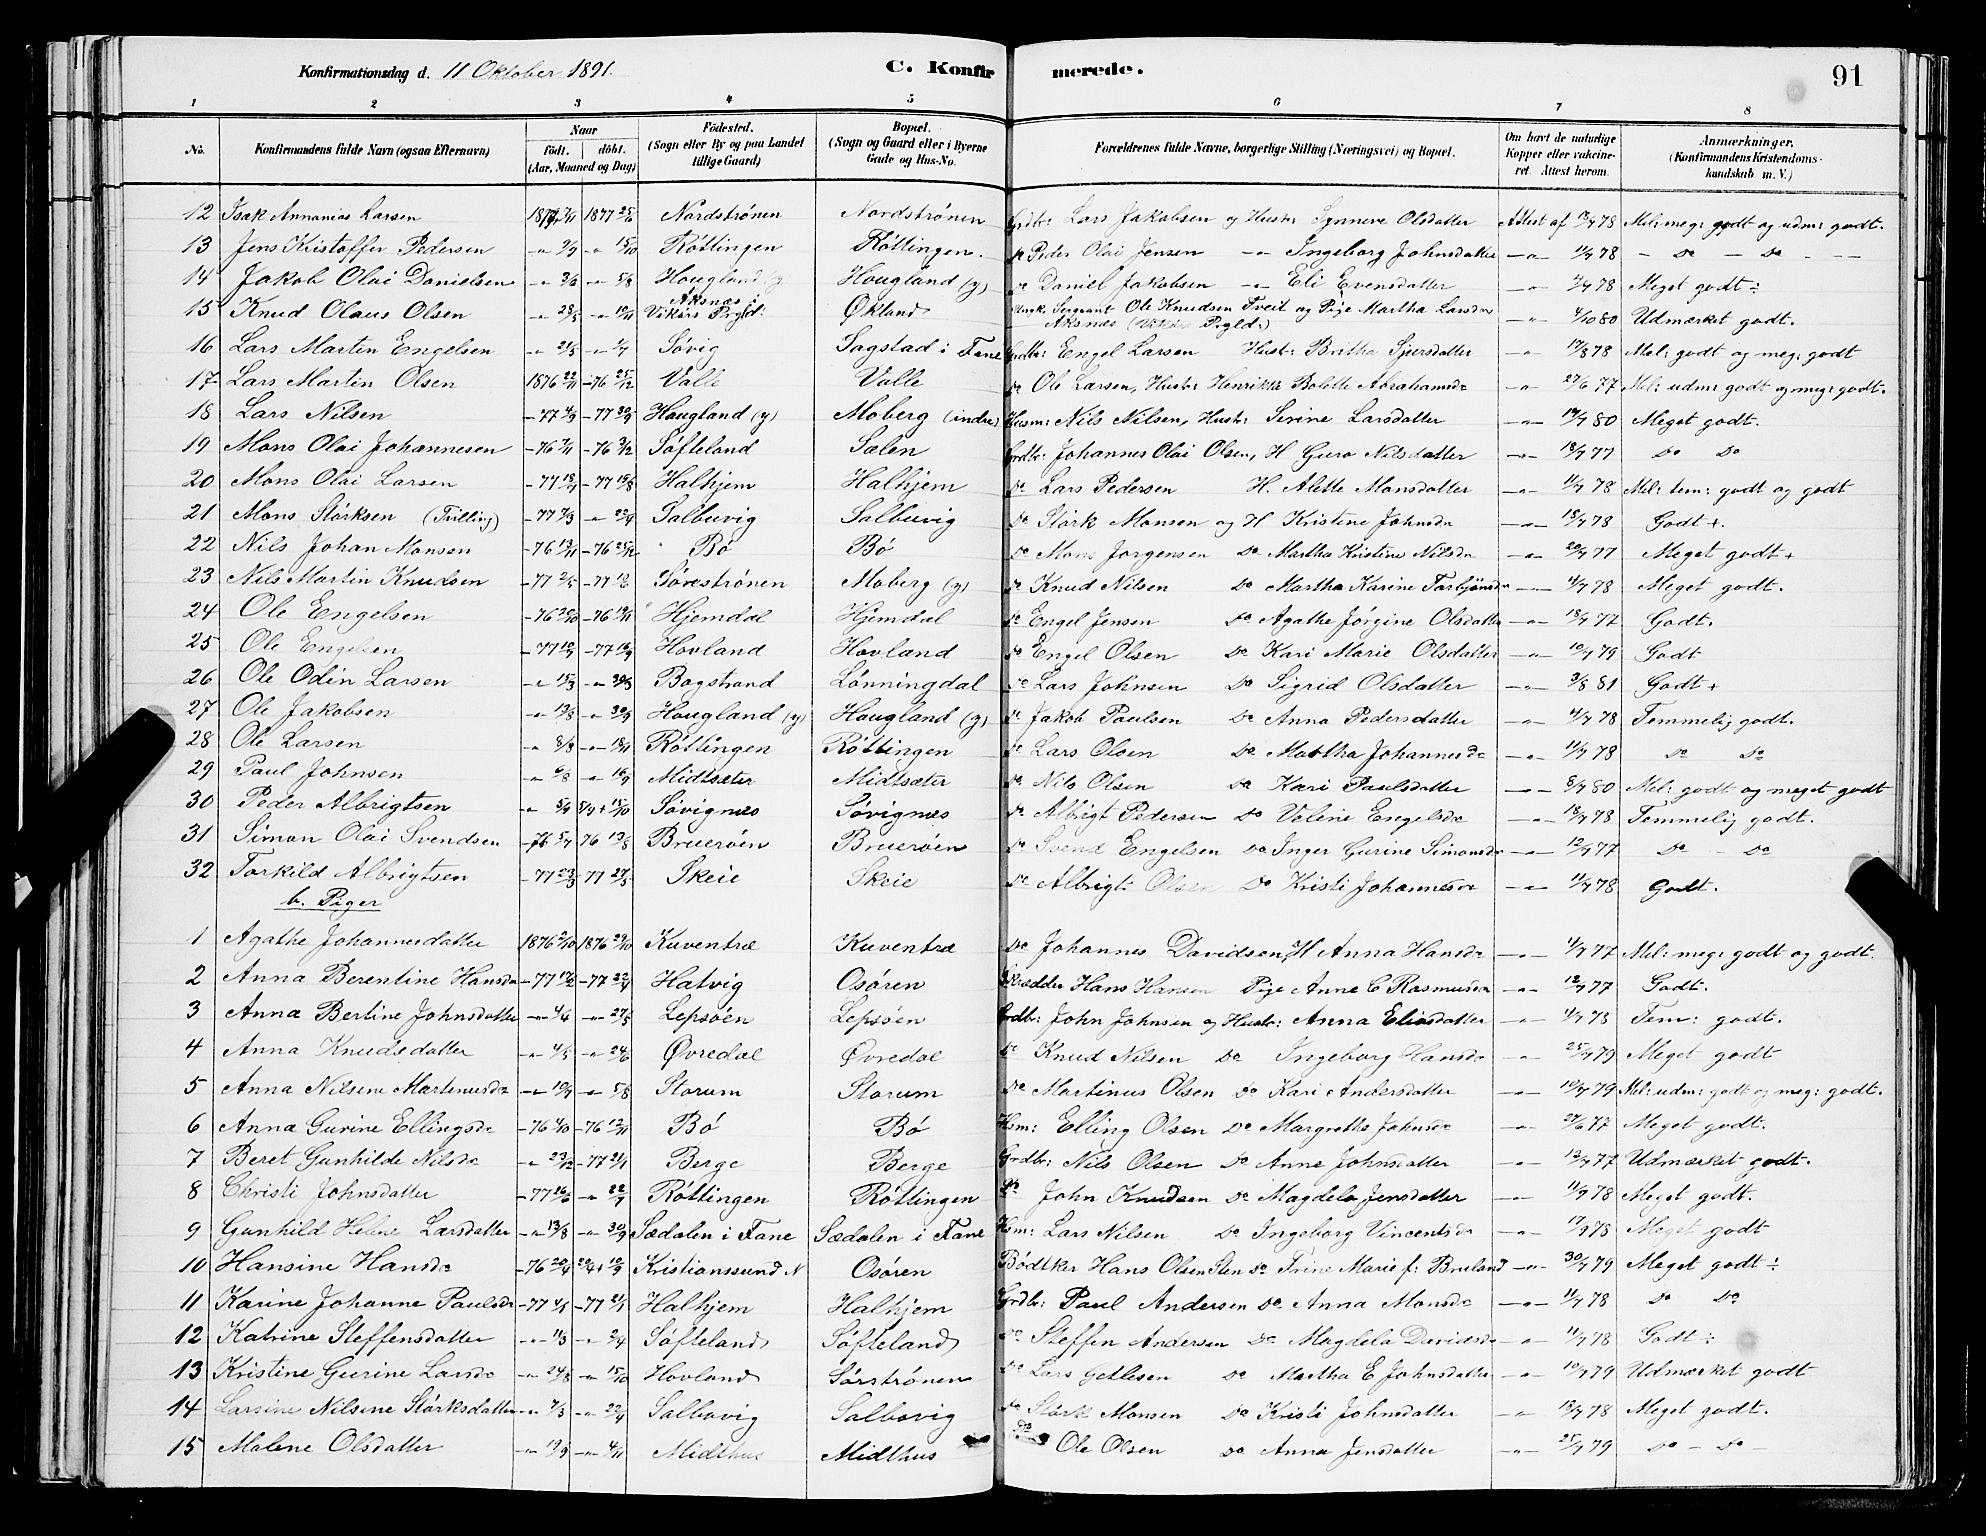 Konfirmationsdag d. 11 Oktober 1891. C. Konfirmerede. 91
1 2 3 4 5 6 7 8
No. Konfirmandens fulde Navn (ogsaa Efternavn) Naar födt. döbt. (Aar, Maaned og Dag) Födested. (Sogn eller By og paa Landet tillige Gaard) Bopæl. (Sogn og Gaard eller i Byerne Gade og Hus-No. Forældrenes fulde Navne, borgerlige Stilling (Næringsvei) og Bopæl. Om havt de naturlige Kopper eller vakcineret. Attest herom. Anmærkninger. (Konfirmandens Kristendomskundskab m. V.)
12 Isak Annanias Larsen 1877 25/6 Nordstrónen Nordstrónen Grdbr: Lars Jakobsen og Hustr: Synneve Olsdatter Attest af 78 Mel: meg: godt og udm: godt.
13 Jens Kristoffer Pedersen 15/10 Röttingen Röttingen. Do Peder Olai Jensen -"- Ingeborg Johnsdatter -"- 11/9 78 - Do - Do - - -
14 Jakob Olai Danielsen 3/6 5/8 Hougland (y) Hougland (y) Do Daniel Jakobsen -"- Eli Evensdatter -"- 78 Meget godt ÷
15 Knud Olaus Olsen 28/5 Aksnæs i Vikörs Prgld: Økland Ungk. Sergeant Ole Knudsen Tveit og Pige Martha Larsda Aksnæs (Vikörs Prgld:) -"- 4/10 80 Udmærket godt.
16 Lars Martin Engelsen 21/5 1/7 Sövig Sagstad i Fane Grdbr: Engel Larsen Hustr: Britha Sjursdatter -"- 17/8 78 Mel: godt og meg: godt
17 Lars Martin Olsen 1876 22/11 -76 25/12 Valle Valle Do Ole Larsen, Hustr: Henrikke Bolette Abrahamsda -"- 27/6 77 Mel: udm: godt og meg: godt.
18 Lars Nilsen -77 4/9 -77 30/9 Haugland (y) Moberg (indre) Husm: Nils Nilsen, Hustr: Serine Larsdatter -"- 80 Meget godt.
19 Mons Olai Johannesen -76 7/11 -76 3/12 Söfteland Sælen Grdbr: Johannes Olai Olsen, H Guro Nilsdatter -"- 18/7 77 Do Do
20 Mons Olai Larsen -77 18/7 -77 19/8 Halhjem Halhjem Do Lars Pedersen H. Alette Monsdatter -"- 11/7 78 Mel: tem: godt og godt
21 Mons Störksen (Tvilling) -77 7/3 -"- 22/4 Salbuvig Salbuvig Do Störk Monsen og H Kristene Johnsda -"- 18/7 78 Godt +.
22 Nils Johan Monsen -76 13/11 -76 25/12 Bö Bö Do Mons Jorgensen Do Martha Kristine Nilsda -"- 20/7 77 Meget godt +
23 Nils Martin Knudsen -77 2/5 -77 Sörestrónen Moberg (y) Do Knud Nilsen Do Martha Karine Torbjönsda -"- 11/7 78 Meget godt.
24 Ole Engelsen -76 20/10 -76 19/11 Hjemdal Hjemdal Do Engel Jensen Do Agathe Jörgine Olsdatter -"- 18/7 77 Godt.
25 Ole Engelsen -77 -77 16/9 Hovland Hovland Do Engel Olsen Do Kari Marie Olsdatter -"- 10/7 79 Godt
26 Ole Odin Larsen -"- 15/3 -"- Bogstrand Lönningdal Do Lars Johnsen Do Sigrid Olsdatter -"- 3/8 81 Godt +
27 Ole Jakobsen -"- 13/8 -"- 30/9 Hougland (y) Hougland (y) Do Jakob Paulsen Do Anna Pedersdatter -"- 11/7 78 Temmelig godt.
28 Ole Larsen -"- 8/9 -"- 18/11 Röttingen Röttingen Do Lars Olsen Do Martha Johannesda -"- 11/9 78 Do Do
29 Paul Johnsen -"- 6/8 -"- 16/9 Midtsæter Midtsæter Do Nils Olsen Do Kari Paulsdatter -"- 8/9 80 Mel: godt og meget godt
30 Peder Albrigtsen -"- 5/9 5/9 + 15/10 Sövignæs Sövignæs Do Albrigt Pedersen Do Valine Engelsda -"- 18/7 78 Temmelig godt.
31 Simon Olai Svendsen -76 5/7 76 13/8 Bruerøen Bruerøen Do Svend Engelsen Do Inger Gurine Simonsda -"- 12/9 77 Do Do
32 Torkild Albrigtsen -77 23/3 77 27/5 Skeie Skeie Do Albrigt Olsen Do Kristi Johannesda -"- 11/7 78 Godt.
b. Piger
1 Agathe Johannesdatter 1876 2/10 1876 29/10 Kuventræ Kuventræ Do Johannes Davidsen, H Anna Hansda -"- 4/7 77 Mel: meg: godt og godt.
2 Anna Berentine Hansda -77 17/2 -77 22/4 Hatvig Osören Skrædder Hans Hansen Pige Anne C Rasmusda -"- 12/9 77 Godt.
3 Anna Bertine Johnsdatter -"- 4/4 -"- 27/5 Lepsöen Lepsöen Grdbr: John Johnsen og Hustr: Anna Eliasdatter -"- 4/7 78 Tem: godt.
4 Anna Knudsdatter -"- 4/5 -"- 24/6 Øvredal Øvredal Do Knud Nilsen Do Ingeborg Hansda -"- 25/7 79 Meget godt
5 Anna Nilsine Martinusda -"- 10/7 -"- 5/8 Storum Storum Do Martinus Olsen Do Kari Andersdatter -"- 10/7 79 Mel: udm: godt og meg: godt.
6 Anna Gurine Ellingsda -76 4/10 -76 12/11 Bö Bö Hsm: Elling Olsen Do Margretha Johnsda -"- 27/6 77 Meget godt.
7 Beret Gunhilde Nilsda -"- 23/12 -77 21/1 Berge Berge Grdbr: Nils Olsen Do Anne Johnsdatter -"- 12/9 77 Udmærket godt.
8 Christi Johnsdatter -77 16/6 -"- 22/7 Röttingen Röttingen Do John Knudsen Do Magdela Jensdatter -"- 11/9 78 Meget godt.
9 Gunhild Helene Larsdatter -"- 13/8 -"- 30/9 Sædalen i Fane Sædalen i Fane Hsm: Lars Nilsen Do Ingeborg Vincentsda -"- 17/9 78 Meget godt
10 Hansine Hansda -76 20/4 Kristianssund N Osören Bödtker Hans Olsen Sten Do Trine Marie f: Bruland -"- 30/7 79 Meget godt ÷
11 Karine Johanne Paulsda -77 4/5 -77 21/5 Halhjem Halhjem Grdbr: Paul Andersen Do Anna Monsda -"- 11/7 78 Do Do
12 Katrine Steffensdatter -"- 11/3 -"- 2/4 Söfteland Söfteland Do Steffen Andersen Do Magdela Davidsda -"- 11/7 78 Godt ÷
13 Kristine Gurine Larsda -"- 24/8 -"- 15/10 Hovland Sörströnen Do Lars Getlesen Do Martha E Johnsdatter -"- 10/7 79 Udmærket godt
14 Larsine Nilsine Störksdatter -"- 7/3 -"- 22/4 Salbovig Salbovig Do Störk Monsen Do Kristi Johnsdatter -"- 18/7 78 Meget godt.
15 Malene Olsdatter -"- 13/9 -"- 4/11 Midthus Midthus Do Ole Olsen Do Anna Jensdatter -"- 25/7 79 Do - Do -